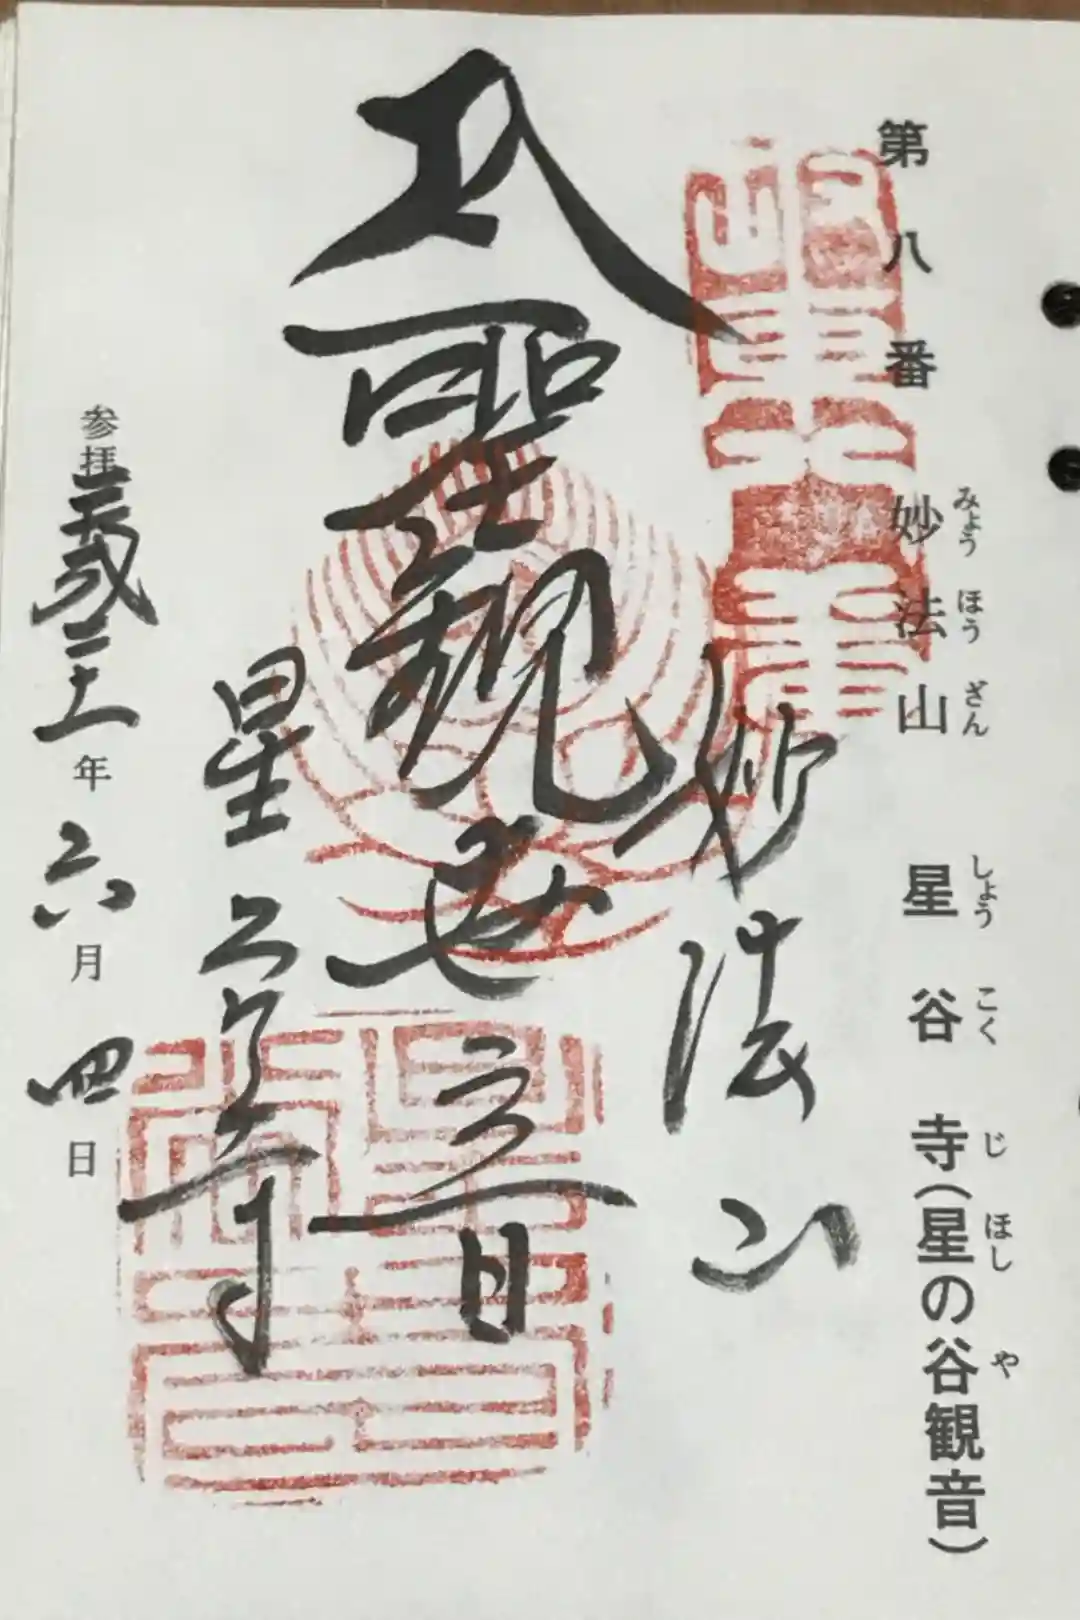 みょうほうざん しょうこくじ ほし や
第八番 妙法山 星谷寺(星の谷観音)
妙法山
聖観世音
星谷寺
参拝 年六月四日